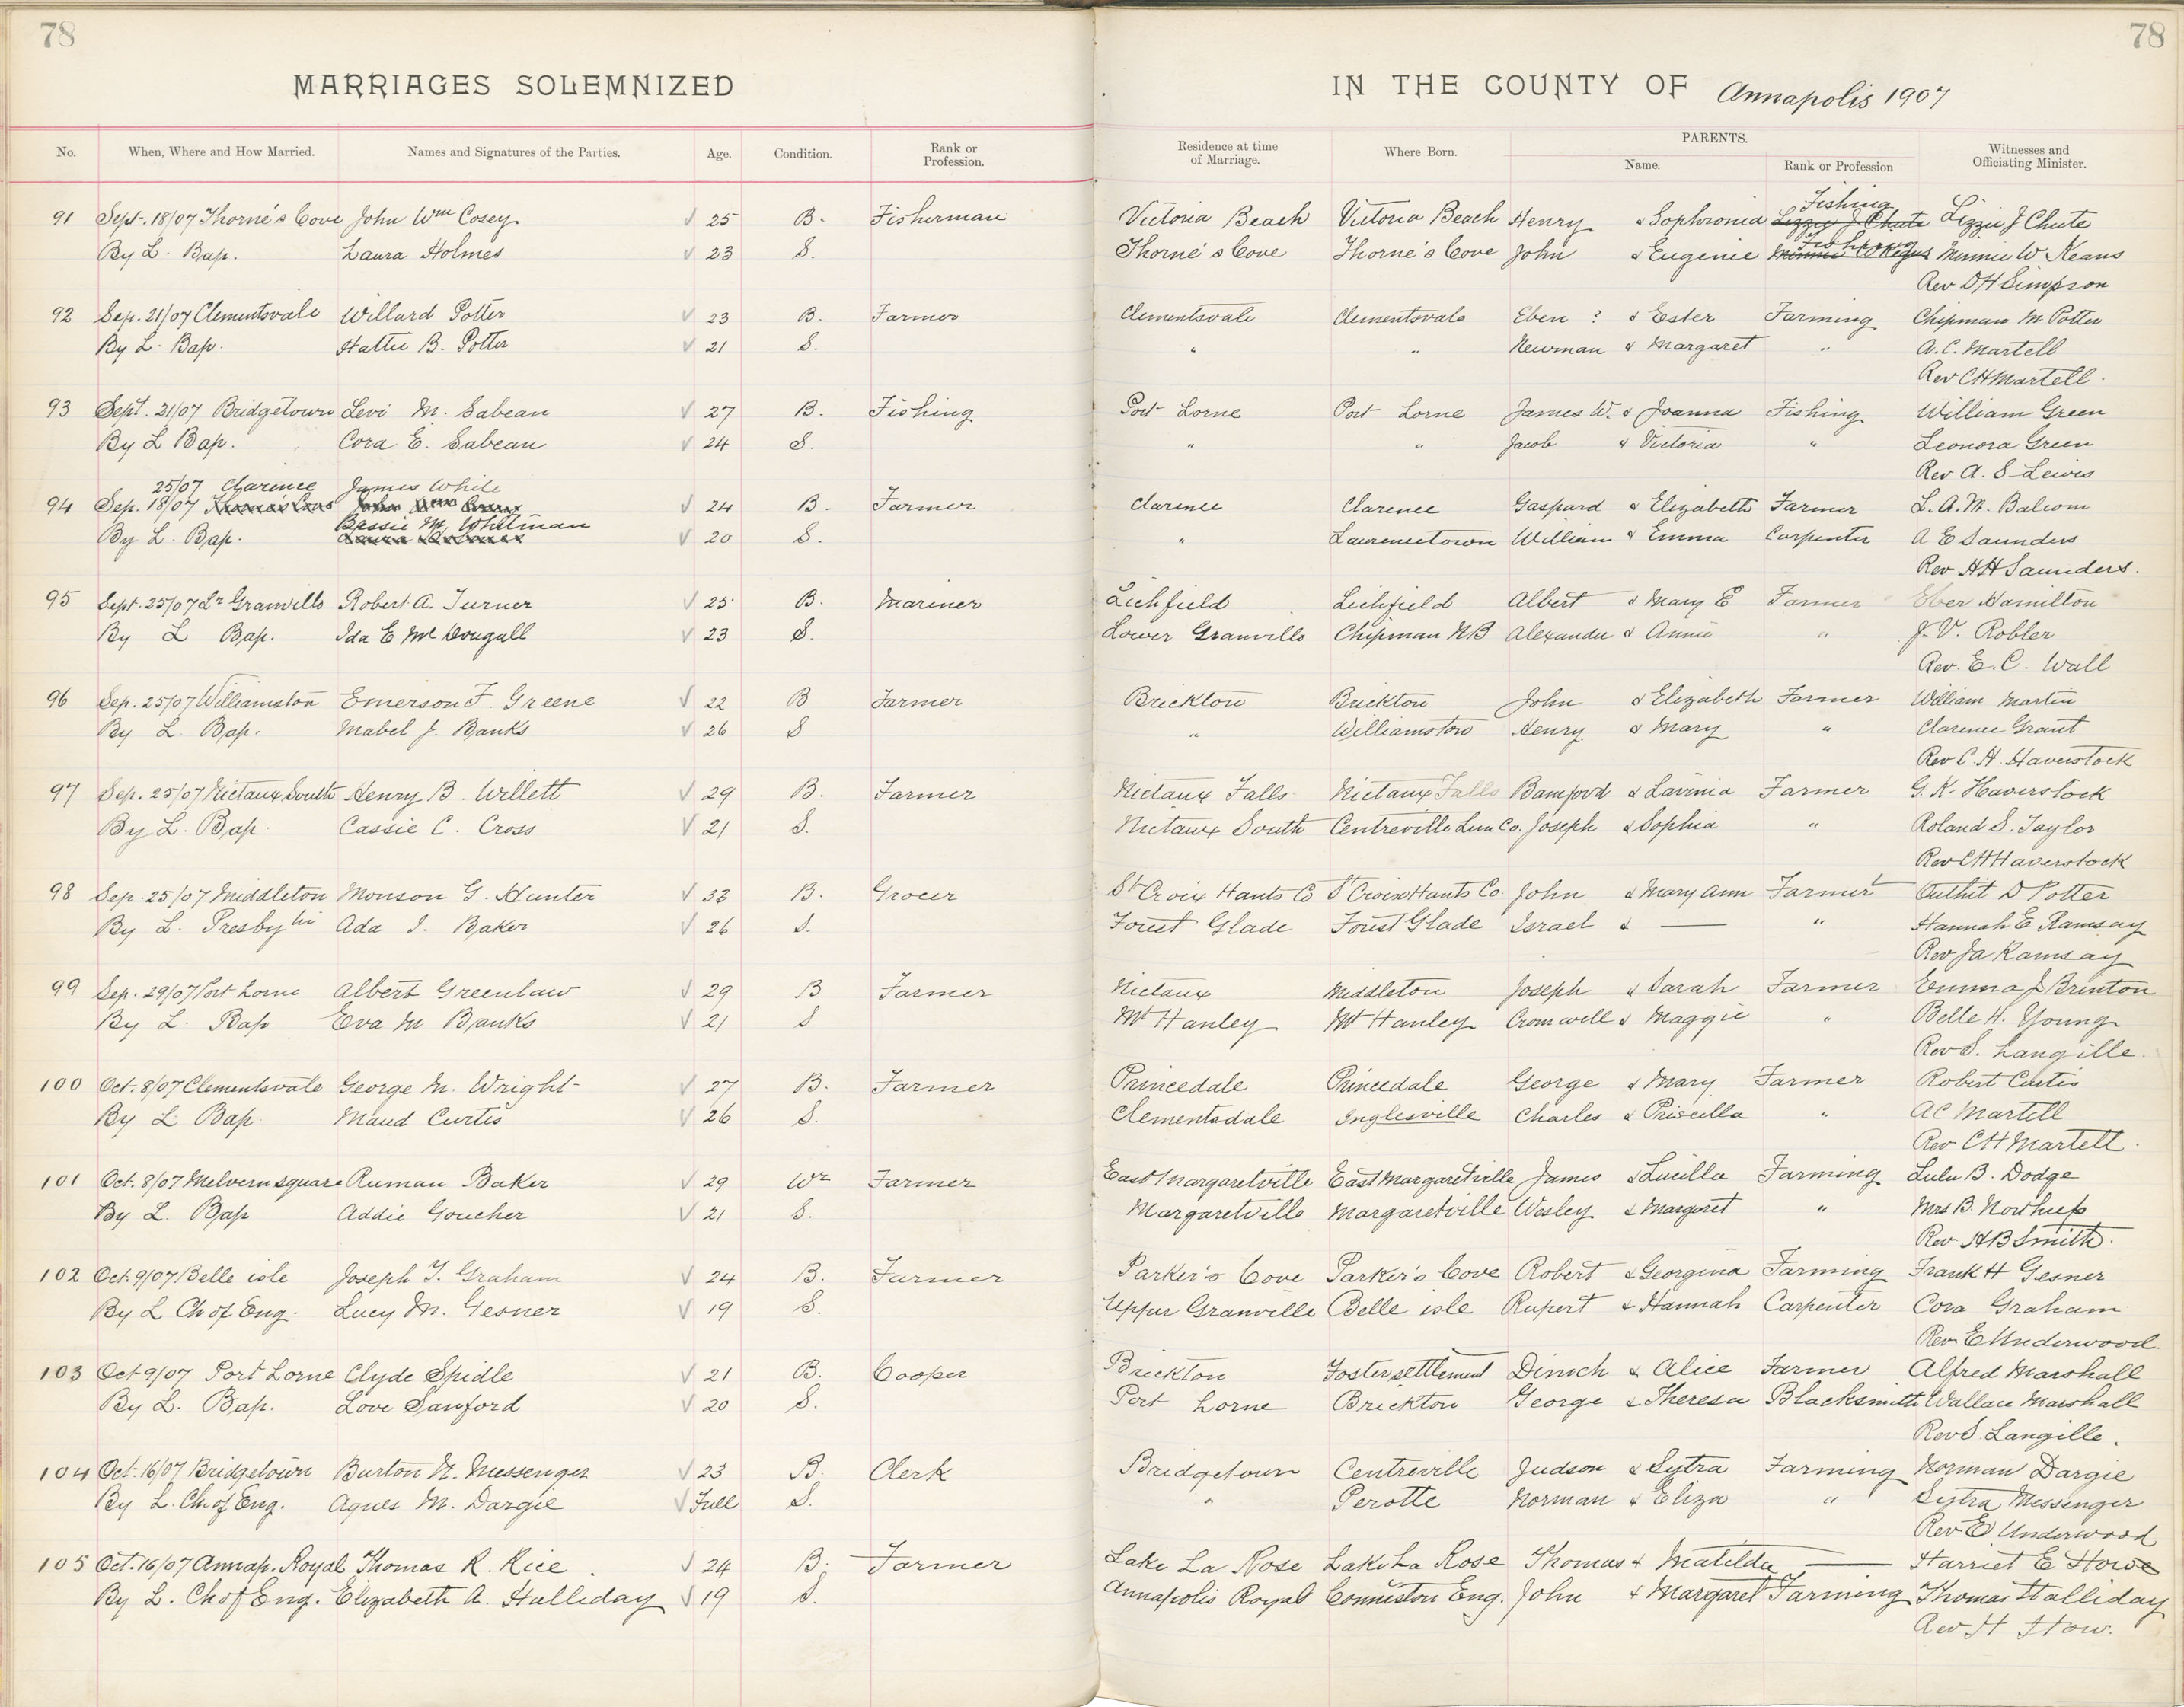 78
78
MARRIAGES SOLEMNIZED IN THE COUNTY OF Annapolis 1907
No. When, Where and How Married. Names and Signatures of the Parties. Age. Condition. Rank or Profession. Residence at time of Marriage. Where Born. PARENTS. Name. Rank or Profession Witnesses and Officiating Minister.
Fishing
91 Sept. 18/07 Thorne's Cove John Wm Cosey √ 25 B. Fisherman Victoria Beach Victoria Beach Henry & Sophronia Lizzie J Chute Lizzie J Chute
Fishing
By L. Bap. Laura Holmes √ 23 S. Thorne's Cove Thorne's Cove John & Eugenie Minnie W Keans Minnie W Keans
Rev D H Simpson
92 Sep. 21/07 Clementsvale Willard Potter √ 23 B. Farmer Clementsvale Clementsvale Eben ? & Ester Farming Chipman M Potter
By L. Bap. Hattie B. Potter √ 21 S. " " Newman & Margaret " A. C. Martell
Rev C H Martell.
93 Sept. 21/07 Bridgetown Levi M. Sabean √ 27 B. Fishing Port Lorne Port Lorne James W. & Joanna Fishing William Green
By L Bap. Cora E. Sabean √ 24 S. " " Jacob & Victoria " Leonora Green
Rev A. S Lewis
25/07 Clarence James White
94 Sep. 18/07 Thorne's Cove John Wm √ 24 B. Farmer Clarence Clarence Gaspard & Elizabeth Farmer L. A. M. Balcom
Bessie M. Whitman
By L. Bap. Laura Holmes √ 20 S. " Laurencetown William & Emma Carpenter A E Saunders
Rev H H Saunders.
95 Sept. 25/07 Lr Granville Robert A. Turner √ 25 B. Mariner Lichfield Lichfield Albert & Mary E Farmer Eber Hamilton
By L Bap. Ida E McDougall √ 23 S. Lower Granville Chipman NB Alexander & Annie " J. V. Robler
Rev. E. C. Wall
96 Sep. 25/07 Williamston Emerson F. Greene √ 22 B Farmer Brickton Brickton John & Elizabeth Farmer William Martin
By L. Bap. Mabel J. Banks √ 26 S " Williamston Henry & Mary " Clarence Grant
Rev C. H. Haverstock
97 Sep. 25/07 Nictaux South Henry B. Willett √ 29 B. Farmer Nictaux Falls Nictaux Falls Bamford & Lavinia Farmer G. K. Haverstock
By L. Bap. Cassie C. Cross √ 21 S. Nictaux South Centreville Lun Co. Joseph & Sophia " Roland S. Taylor
Rev C H Haverstock
98 Sep. 25/07 Middleton Monson G. Hunter √ 33 B. Grocer St Croix Hants Co St Croix Hants Co. John & Mary Ann Farmer Outhit D Potter
By L. Presbytn Ada I. Baker √ 26 S. Forest Glade Forest Glade Israel & — " Hannah E Ramsay
Rev Ja Ramsay
99 Sep. 29/07 Port Lorne Albert Greenlaw √ 29 B Farmer Nictaux Middleton Joseph & Sarah Farmer Emma J Brinton
By L. Bap Eva M Banks √ 21 S Mt Hanley Mt Hanley Cromwell & Maggie " Belle H. Young
Rev S. Langille.
100 Oct. 8/07 Clementsvale George M. Wright √ 27 B. Farmer Princedale Princedale George & Mary Farmer Robert Curtis
By L Bap. Maud Curtis √ 26 S. Clementsdale Inglesville Charles & Priscilla " A C Martell
Rev C H Martell.
101 Oct. 8/07 Melvern square Ruman Baker √ 29 Wr Farmer East Margaretville East Margaretville James & Lucilla Farming Lulu B. Dodge
By L. Bap Addie Goucher √ 21 S. Margaretville Margaretville Wesley & Margaret " Mrs B. Northup
Rev H B Smith.
102 Oct. 9/07 Belle isle Joseph T. Graham √ 24 B. Farmer Parker's Cove Parker's Cove Robert & Georgina Farming Frank H Gesner
By L Ch of Eng. Lucy M. Gesner √ 19 S. Upper Granville Belle isle Rupert & Hannah Carpenter Cora Graham
Rev. E Underwood.
103 Oct 9/07 Port Lorne Clyde Spidle √ 21 B. Cooper Brickton Foster settlement Dimock & Alice Farmer Alfred Marshall
By L. Bap. Love Sanford √ 20 S. Port Lorne Brickton George & Theresa Blacksmith Wallace Marshall
Rev S. Langille.
104 Oct. 16/07 Bridgetown Burton N. Messenger √ 23 B. Clerk Bridgetown Centreville Judson & Sytra Farming Norman Dargie
By L. Ch. of Eng. Agnes M. Dargie √ Full S. " Perotte Norman & Eliza " Sytra Messenger
Rev E Underwood
105 Oct. 16/07 Annap. Royal Thomas R. Rice √ 24 B. Farmer Lake La Rose Lake La Rose Thomas & Matilda — Harriet E Howe
By L. Ch of Eng. Elizabeth A. Halliday √ 19 S. Annapolis Royal Conniston Eng. John & Margaret Farming Thomas Halliday
Rev H How.